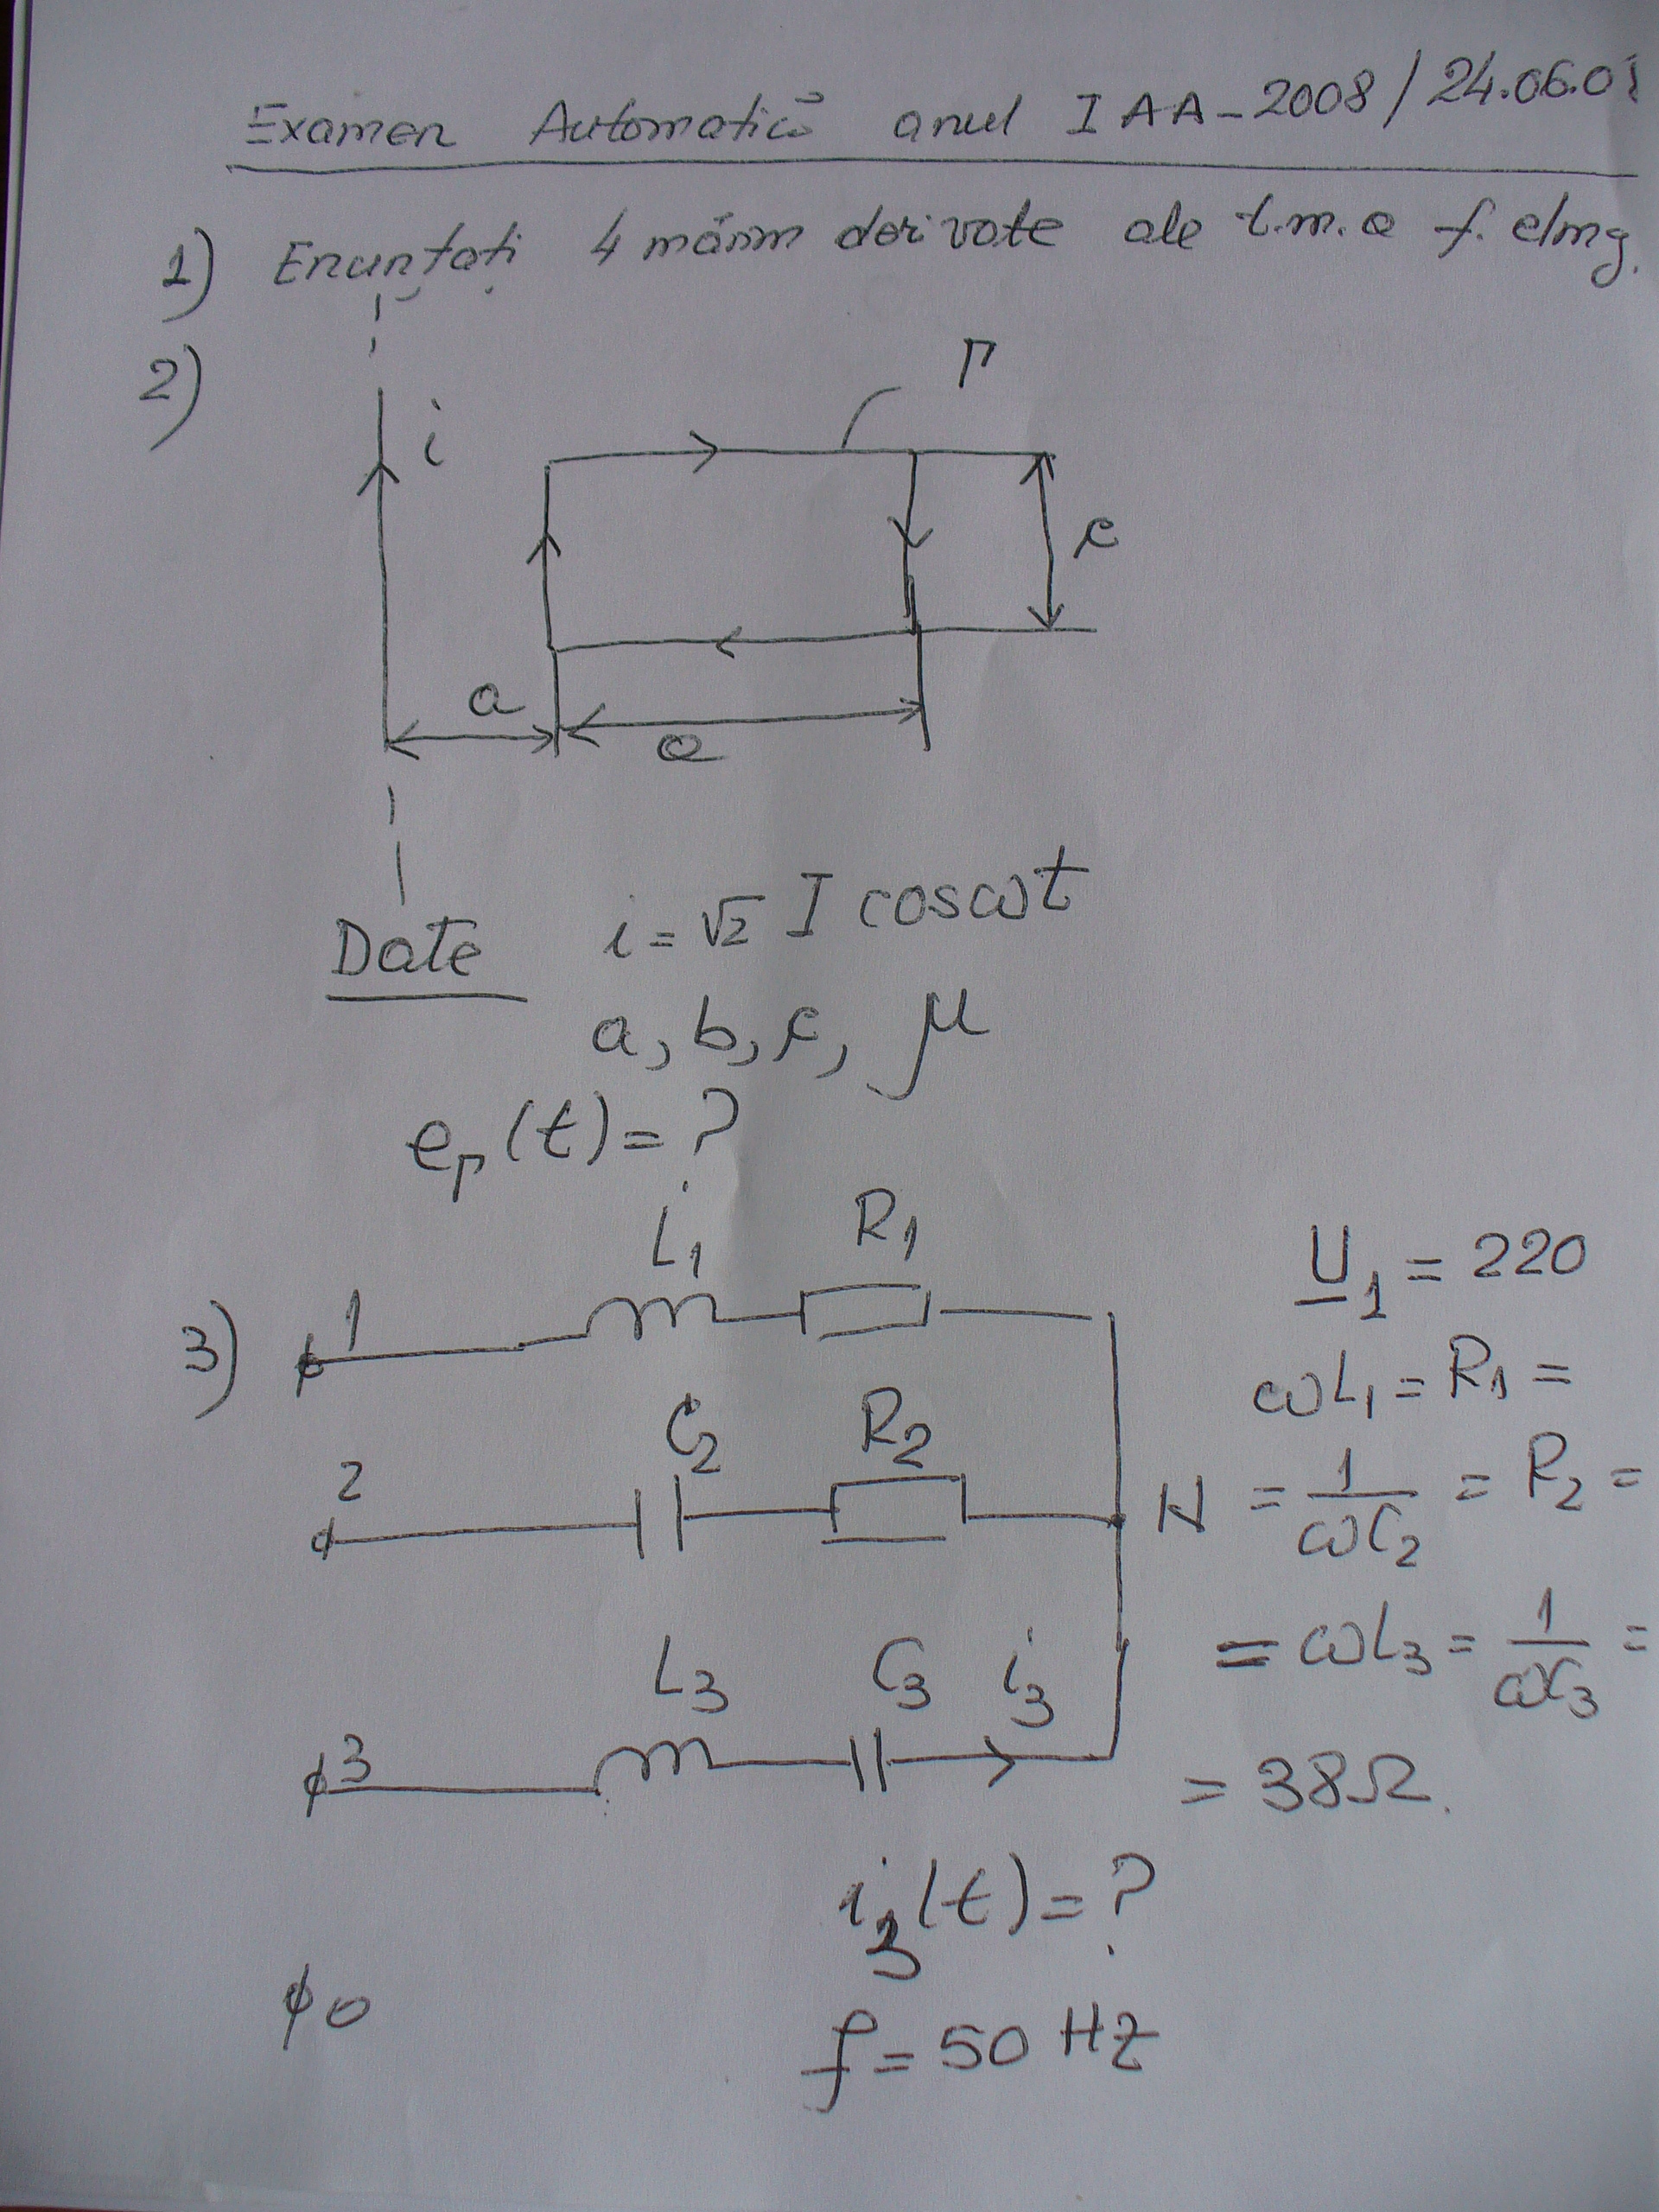 Examen Automatică anul I AA-2008 / 24.06.01
1) Enunțați 4 mărim derivate ale t.m. a f. elmg.
2)
Γ
i
c
a
a
Date i = √2 I cos ωt
a, b, c, μ
eΓ(t) = ?
3)
1 L1 R1
U1 = 220
ωL1 = R1 =
2 C2 R2 N = 1/ωC2 = R2 =
= ωL3 = 1/ωC3 =
3 L3 C3 i3
= 38Ω.
i3(t) = ?
0
f = 50 Hz